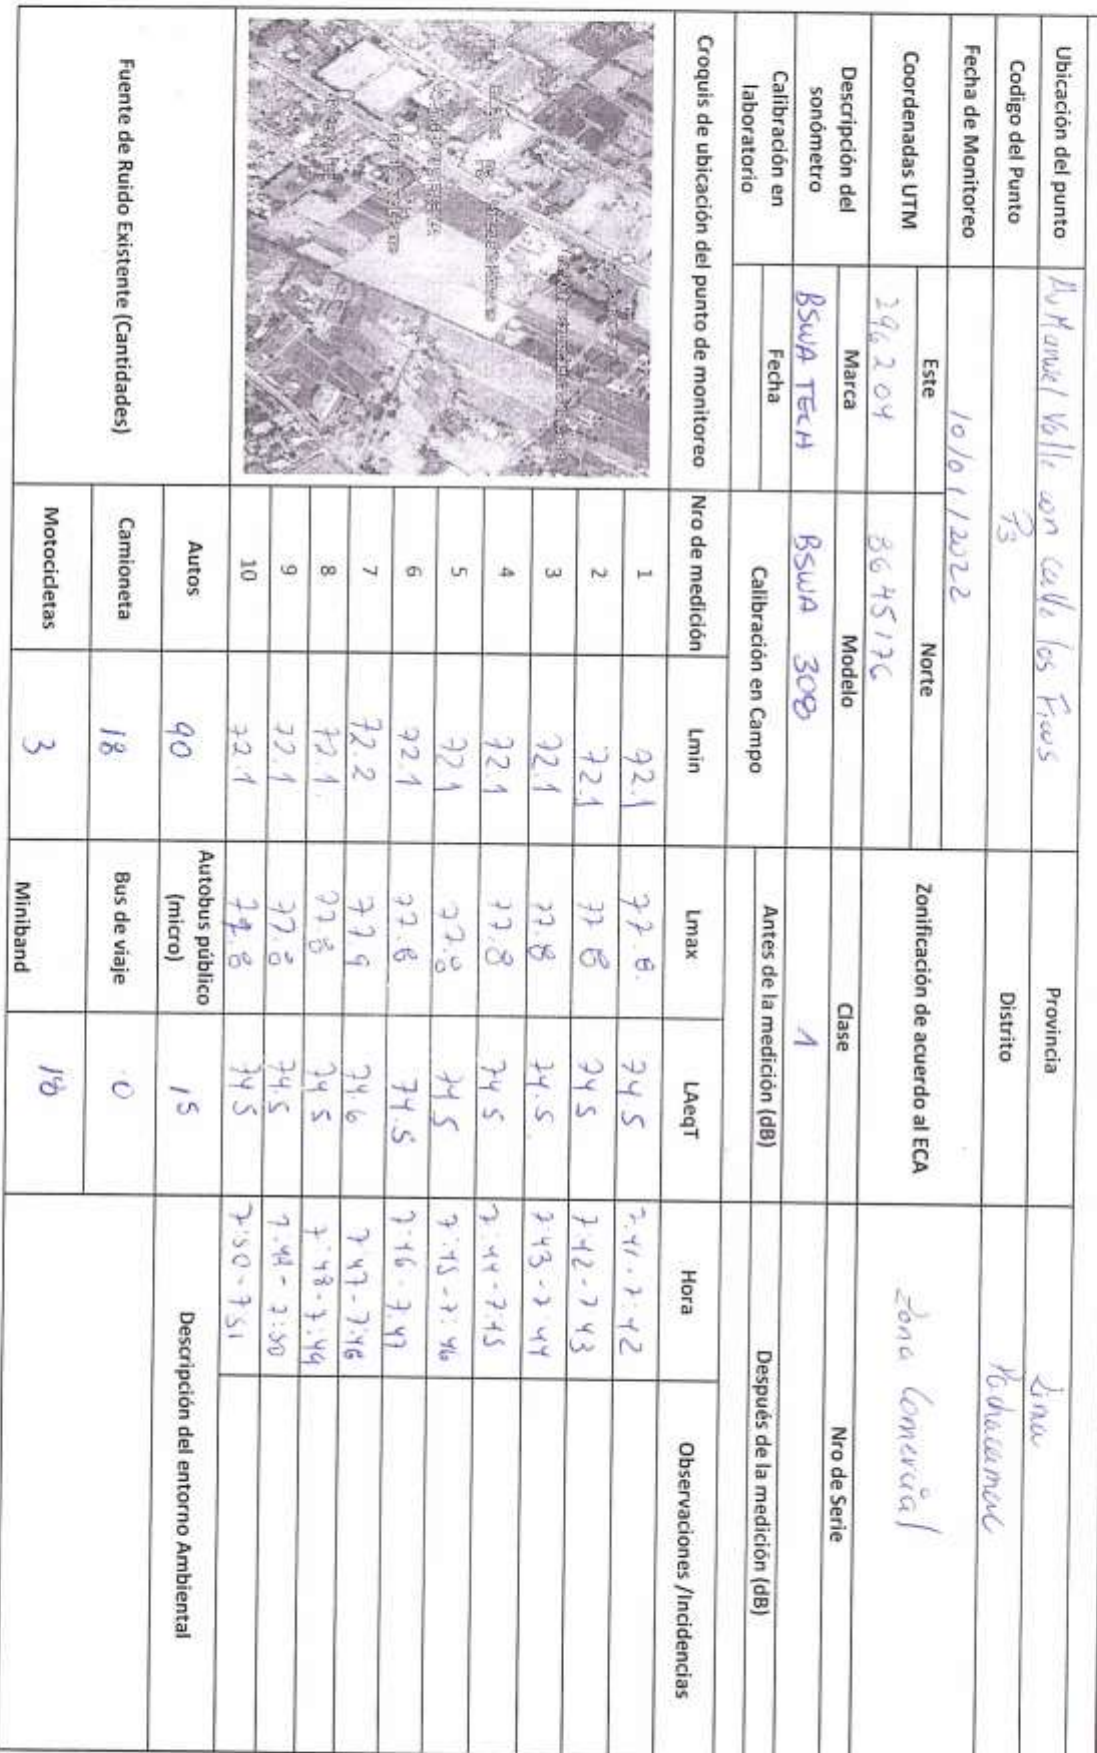 Ubicación del punto Av Manuel Valle con Calle los Ficus Provincia Lima
Codigo del Punto P3 Distrito Pachacamac
Fecha de Monitoreo 10/01/2022
Coordenadas UTM Este Norte Zonificación de acuerdo al ECA Zona Comercial
296204 8645176
Descripción del sonómetro Marca Modelo Clase Nro de Serie
BSWA TECH BSWA 308 1
Calibración en laboratorio Fecha Calibración en Campo Antes de la medición (dB) Después de la medición (dB)
Croquis de ubicación del punto de monitoreo Nro de medición Lmin Lmax LAeqT Hora Observaciones /Incidencias
1 72.1 77.8. 74 5 7:41-7:42
2 72.1 77 8 74 5 7 42-7 43
3 72.1 77.8 74.5 7:43-7 44
4 72.1 77.8 74 5 7:44-7:45
5 72 1 77.8 74.5 7:45-7:46
6 72 1 77.8 74.5 7:46-7.47
7 72.2 77 9 74.6 7 47-7:48
8 72.1. 77 8 74 5 7:48-7:49
9 72.1 77.8 74.5 7:50
10 72.1 77.8 74 5 7:50-7 51
Fuente de Ruido Existente (Cantidades) Autos 90 Autobus público (micro) 15 Descripción del entorno Ambiental
Camioneta 18 Bus de viaje 0
Motocicletas 3 Miniband 18